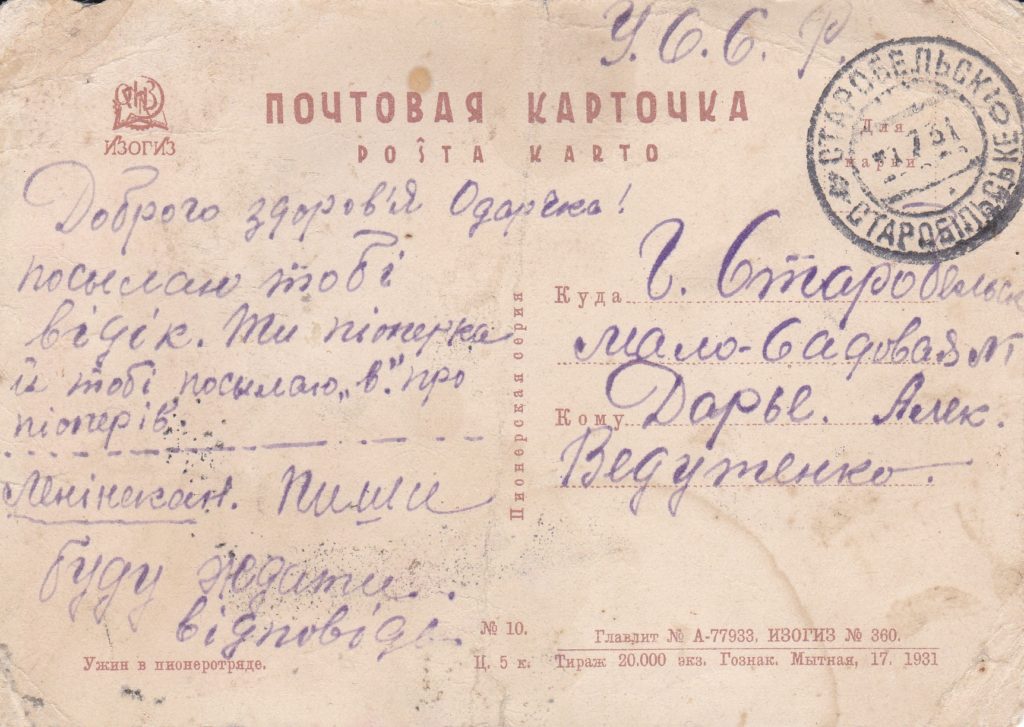 У.С.С.Р.
ИЗОГИЗ
ПОЧТОВАЯ КАРТОЧКА
POŜTA KARTO
Для
марки
СТАРОБЕЛЬСК
СТАРОБІЛЬСЬКЕ
Доброго здоров'я Одарчка!
посылаю тобі
відік. Ти піонерка
й тобі посылаю „в." про
піонерів.
Ленінакан. Пиши
буду ждати..
відповіді.
Пионерская серия
Куда г. Старобельск
Мало-Садовая
Кому Дарье. Алек.
Ведутенко.
№ 10.
Ц. 5 к.
Ужин в пионеротряде.
Главлит № А-77933. ИЗОГИЗ № 360.
Тираж 20.000 экз. Гознак. Мытная, 17. 1931